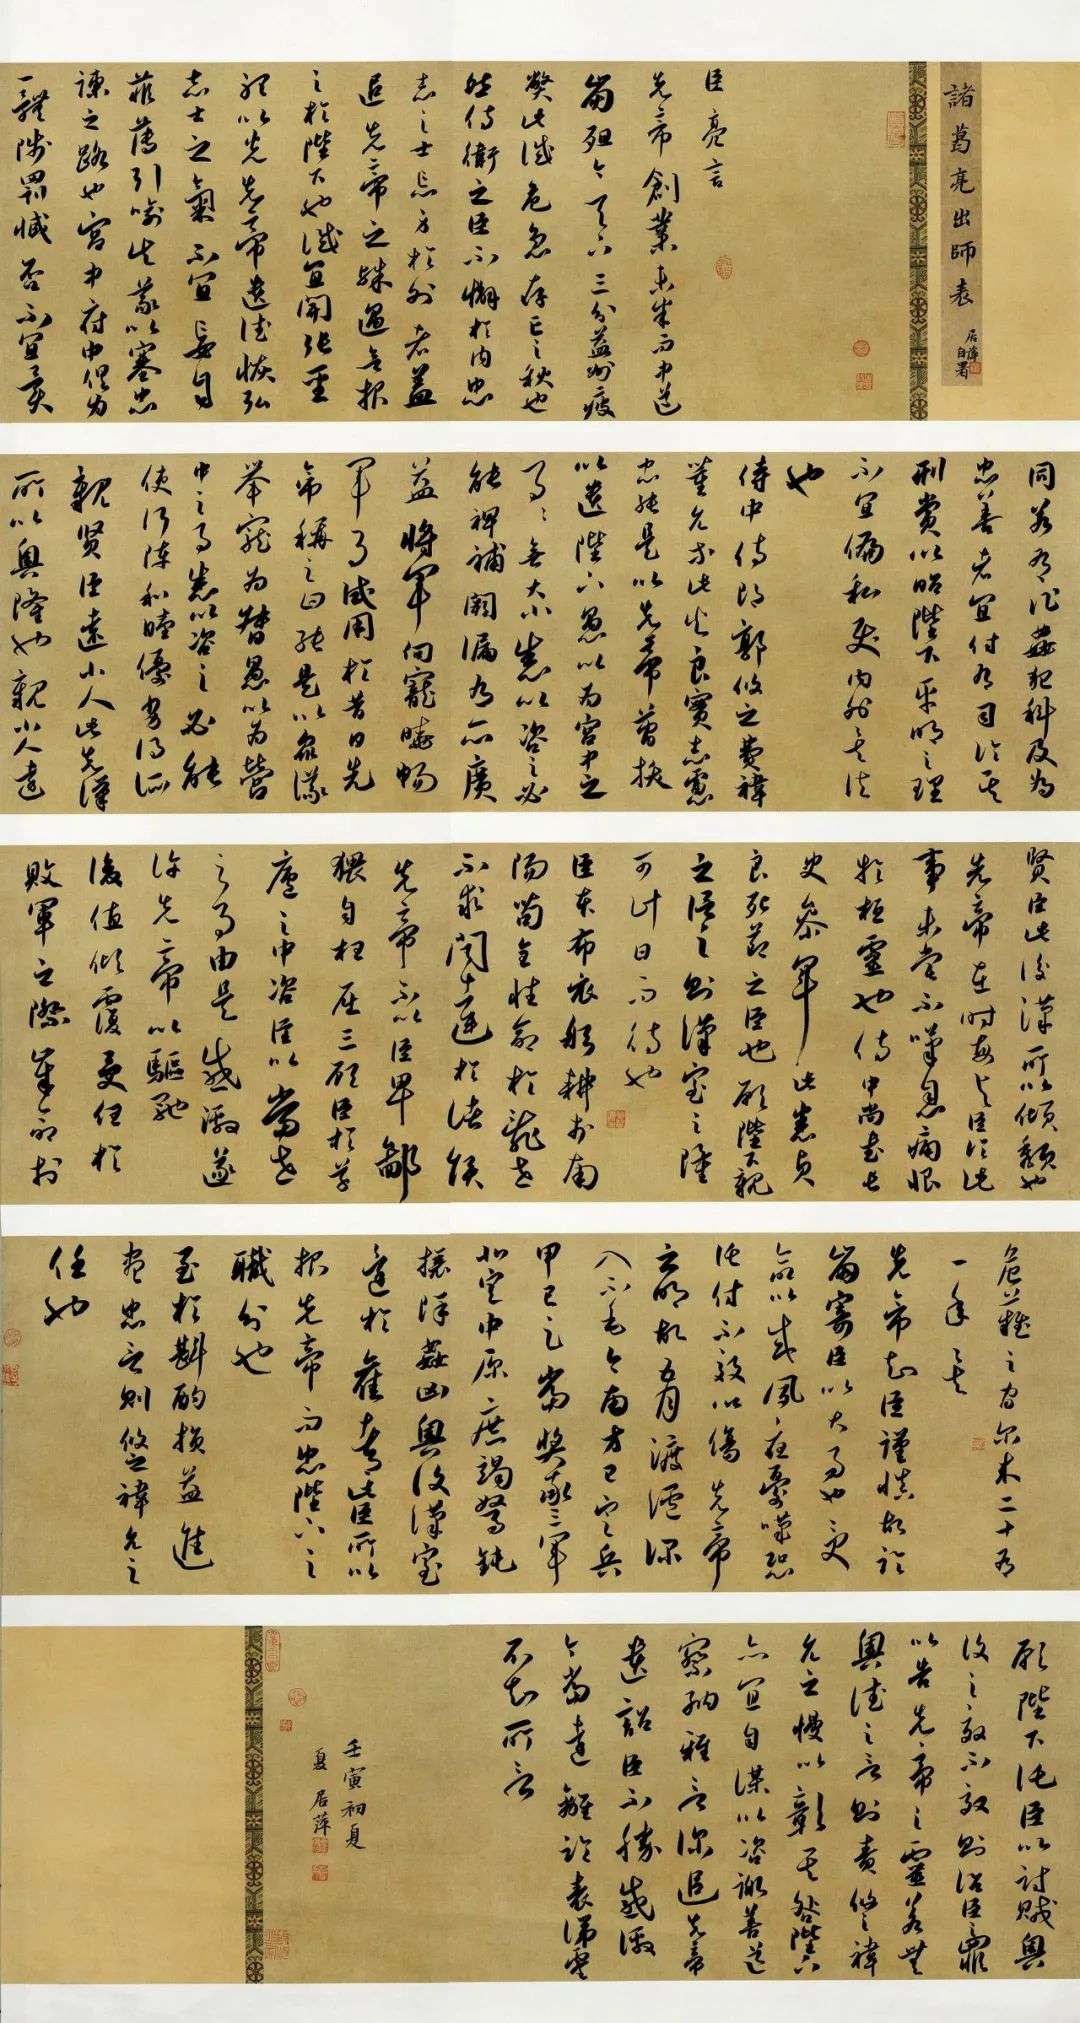 諸葛亮出師表
居萍自署
臣亮言
先帝創業未半而中道
崩殂今天下三分益州疲
弊此誠危急存亡之秋也
然侍衛之臣不懈於内忠
志之士忘身於外者蓋
追先帝之殊遇欲報
之於陛下也誠宜開張聖
聽以光先帝遺德恢弘
志士之氣不宜妄自
菲薄引喻失義以塞忠
諫之路也宮中府中俱為
一體陟罰臧否不宜異
同若有作姦犯科及為
忠善者宜付有司論其
刑賞以昭陛下平明之理
不宜偏私使内外異法
也
侍中侍郎郭攸之費禕
董允等此皆良實志慮
忠純是以先帝簡拔
以遺陛下愚以為宮中之
事事無大小悉以咨之必
能裨補闕漏有所廣
益將軍向寵曉暢
軍事試用於昔日先
帝稱之曰能是以眾議
舉寵為督愚以為營
中之事悉以咨之必能
使行陣和睦優劣得所
親賢臣遠小人此先漢
所以興隆也親小人遠
賢臣此後漢所以傾頹也
先帝在時每與臣論此
事未嘗不嘆息痛恨
於桓靈也侍中尚書長
史參軍此悉貞
良死節之臣也願陛下親
之信之則漢室之隆
可計日而待也
臣本布衣躬耕於南
陽苟全性命於亂世
不求聞達於諸侯
先帝不以臣卑鄙
猥自枉屈三顧臣於草
廬之中咨臣以當世
之事由是感激遂
許先帝以驅馳
後值傾覆受任於
敗軍之際奉命於
危難之間爾來二十有
一年矣
先帝知臣謹慎故臨
崩寄臣以大事也受
命以來夙夜憂嘆恐
託付不效以傷先帝
之明故五月渡瀘深
入不毛今南方已定兵
甲已足當獎率三軍
北定中原庶竭駑鈍
攘除姦凶興復漢室
還於舊都此臣所以
報先帝而忠陛下之
職分也
至於斟酌損益進
盡忠言則攸之禕允之
任也
願陛下託臣以討賊興
復之效不效則治臣之罪
以告先帝之靈若無
興德之言則責攸之禕
允之慢以彰其咎陛下
亦宜自謀以咨諏善道
察納雅言深追先帝
遺詔臣不勝感激
今當遠離臨表涕零
不知所言
壬寅初夏
夏居萍